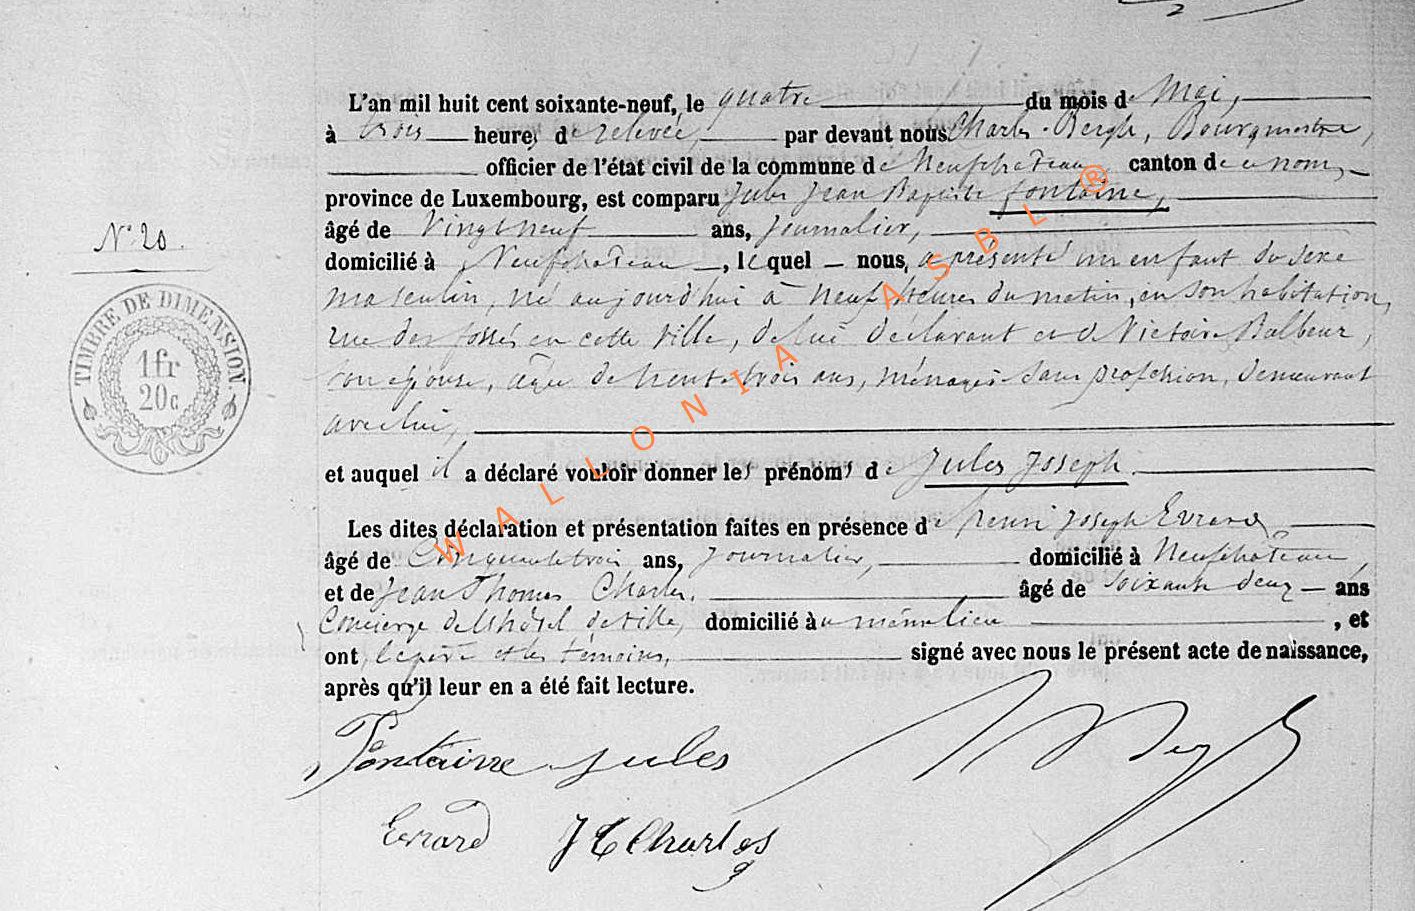 L'an mil huit cent soixante-neuf, le quatre du mois de Mai,
à trois heures de relevée, par devant nous Charles Bergh, Bourgmestre,
officier de l'état civil de la commune de Neufchâteau canton de ce nom,
province de Luxembourg, est comparu Jules Jean Baptiste Fontaine,
âgé de Vingt neuf ans, Journalier,
N° 20.
domicilié à Neufchâteau, lequel nous, a présenté un enfant du sexe
masculin, né aujourd'hui à neuf heures du matin, en son habitation,
TIMBRE DE DIMENSION
rue des fossés en cette ville, de lui déclarant et de Victoire Balbeur,
1fr
20c
son épouse, âgée de trente trois ans, ménagère sans profession, demeurant
avec lui,
et auquel il a déclaré vouloir donner les prénoms de Jules Joseph
Les dites déclaration et présentation faites en présence de Henri Joseph Evrard
âgé de Cinquante trois ans, Journalier, domicilié à Neufchâteau,
et de Jean Thomas Charles, âgé de soixante deux ans
Concierge de l'hôtel de ville, domicilié au même lieu, et
ont le père et les témoins, signé avec nous le présent acte de naissance,
après qu'il leur en a été fait lecture.
Fontaine Jules
Evrard JT Charles
WALLONIA ASBL ®